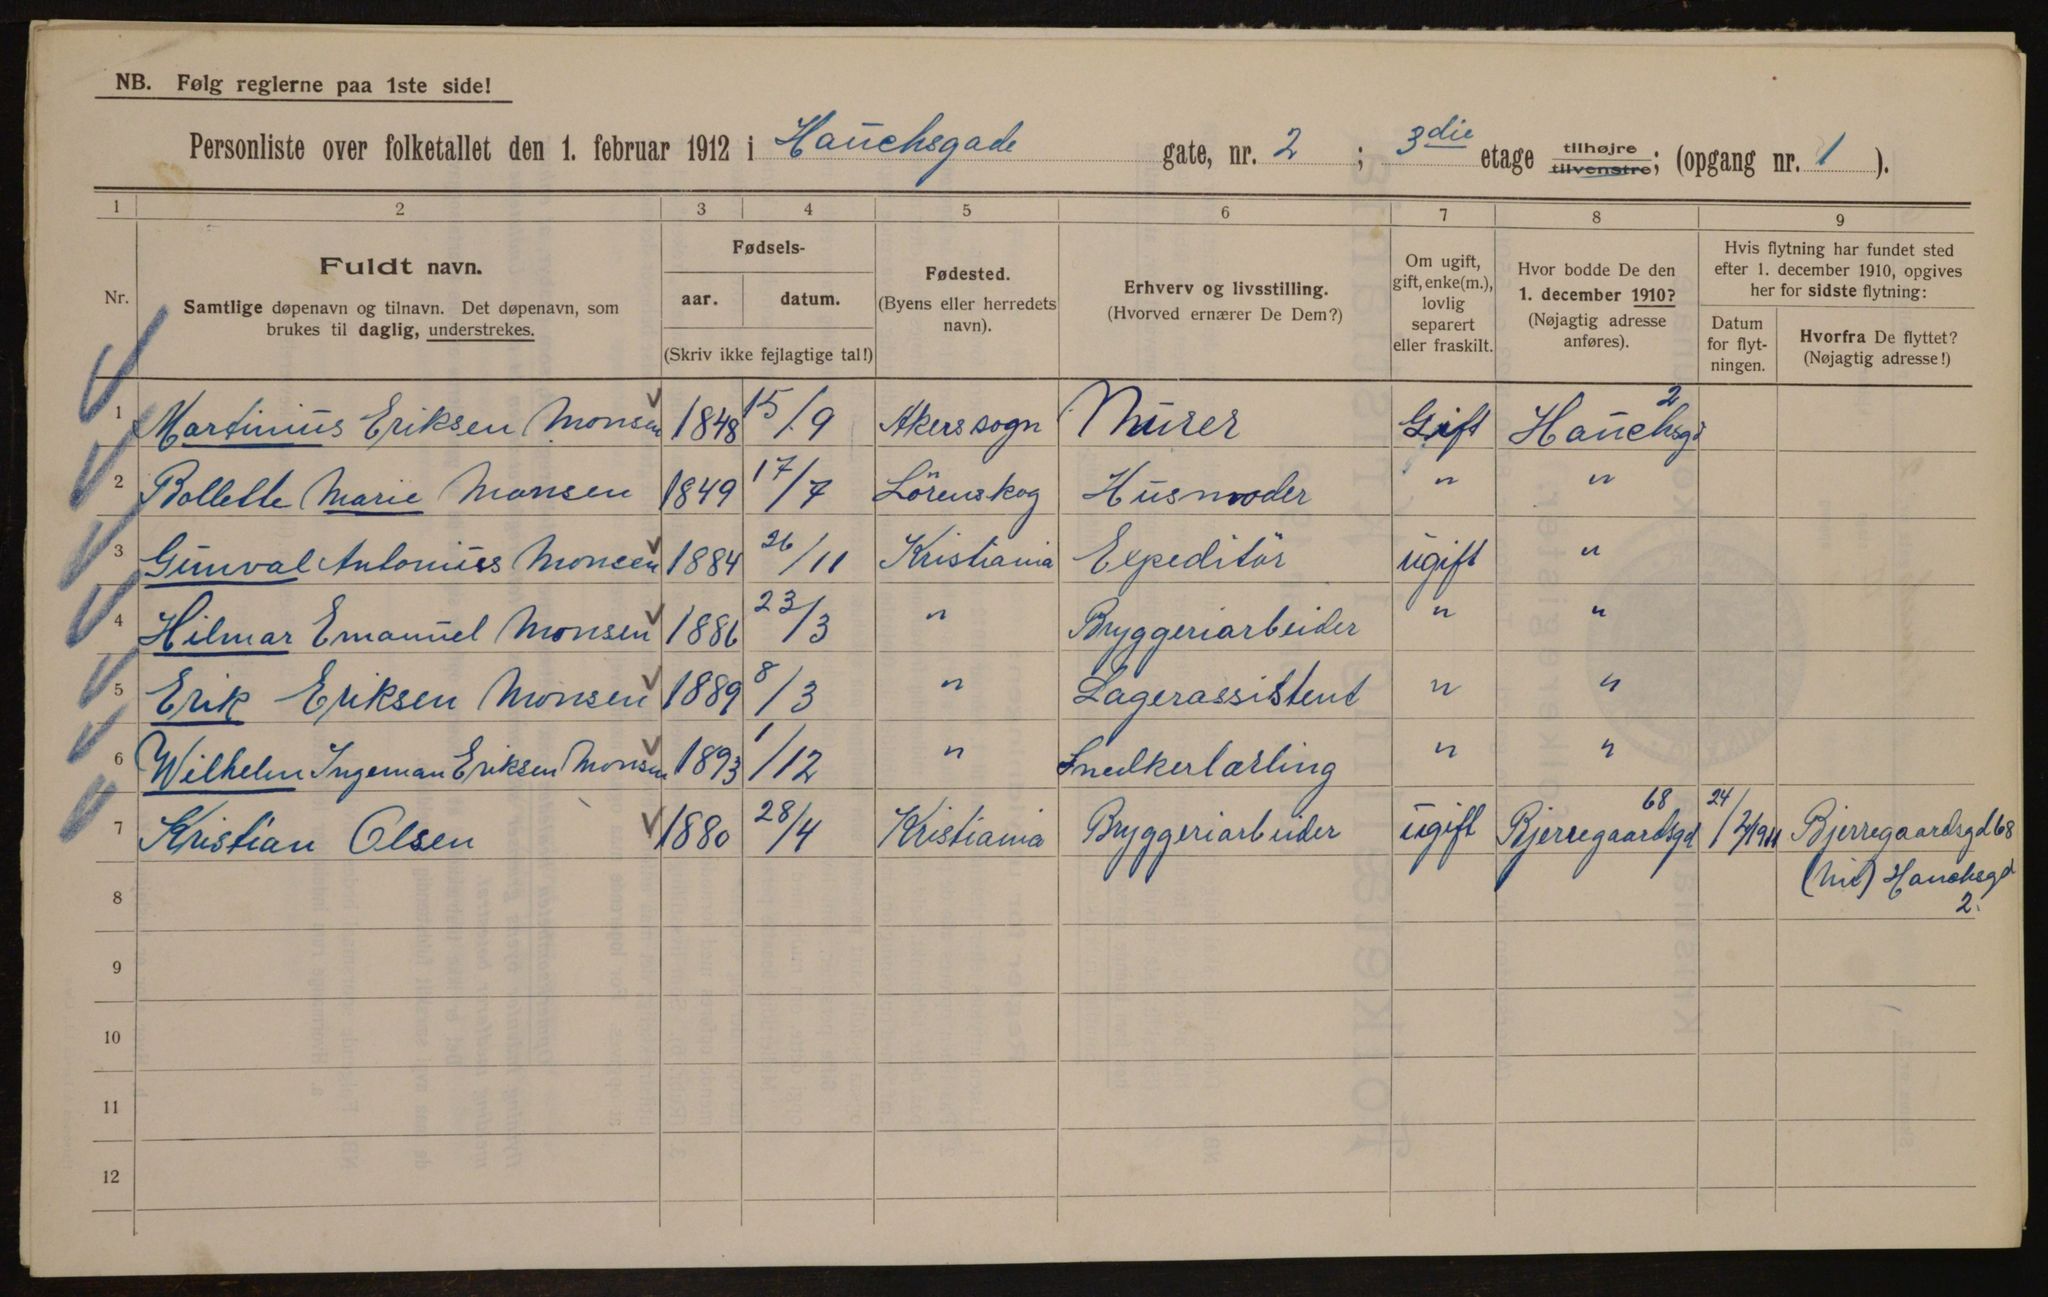 NB. Følg reglerne paa 1ste side!
Personliste over folketallet den 1. februar 1912 i Hauchsgade gate, nr. 2 ; 3die etage tilhøjre tilvenstre; (opgang nr. 1 ).
1 2 3 4 5 6 7 8 9
Nr.
Fuldt navn.
Samtlige døpenavn og tilnavn. Det døpenavn, som
brukes til daglig, understrekes.
Fødsels-
aar. datum.
(Skriv ikke fejlagtige tal!)
Fødested.
(Byens eller herredets
navn).
Erhverv og livsstilling.
(Hvorved ernærer De Dem?)
Om ugift,
gift, enke(m.),
lovlig
separert
eller fraskilt.
Hvor bodde De den
1. december 1910?
(Nøjagtig adresse
anføres).
Hvis flytning har fundet sted
efter 1. december 1910, opgives
her for sidste flytning:
Datum
for flyt-
ningen.
Hvorfra De flyttet?
(Nøjagtig adresse!)
1 Martinius Eriksen Monsen 1848 15/9 Akers sogn Murer Gift Hauchsgd 2
2 Bollette Marie Monsen 1849 17/7 Lörenskog Husmoder " "
3 Gunval Antonius Monsen 1884 26/11 Kristiania Expeditör ugift "
4 Hilmar Emanuel Monsen 1886 23/3 " Bryggeriarbeider " "
5 Erik Eriksen Monsen 1889 8/3 " Lagerassistent " "
6 Wilhelm Ingeman Eriksen Monsen 1893 1/12 " Snedkerlærling " "
7 Kristian Olsen 1880 28/4 Kristiania Bryggeriarbeider ugift Bjerregaardsgd 68 24/2 1911 Bjerregaardsgd 68
8 Hauchsgd
2.
9
10
11
12